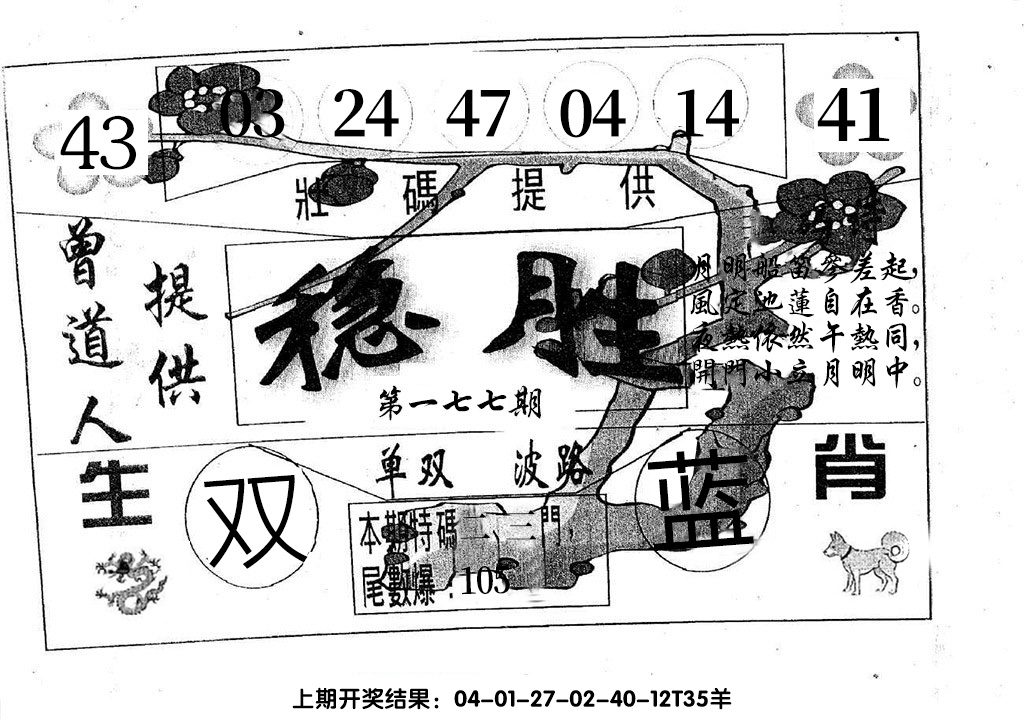 43 03 24 47 04 14 41
壯碼提供
曾道人
提供
稳胜
第一七七期
特
月明船笛參差起,
風定池蓮自在香。
夜熱依然午熱同,
開門小立月明中。
单双 波路
生肖
双
蓝
本期特碼二、三門,
尾數爆:105
上期开奖结果：04-01-27-02-40-12T35羊